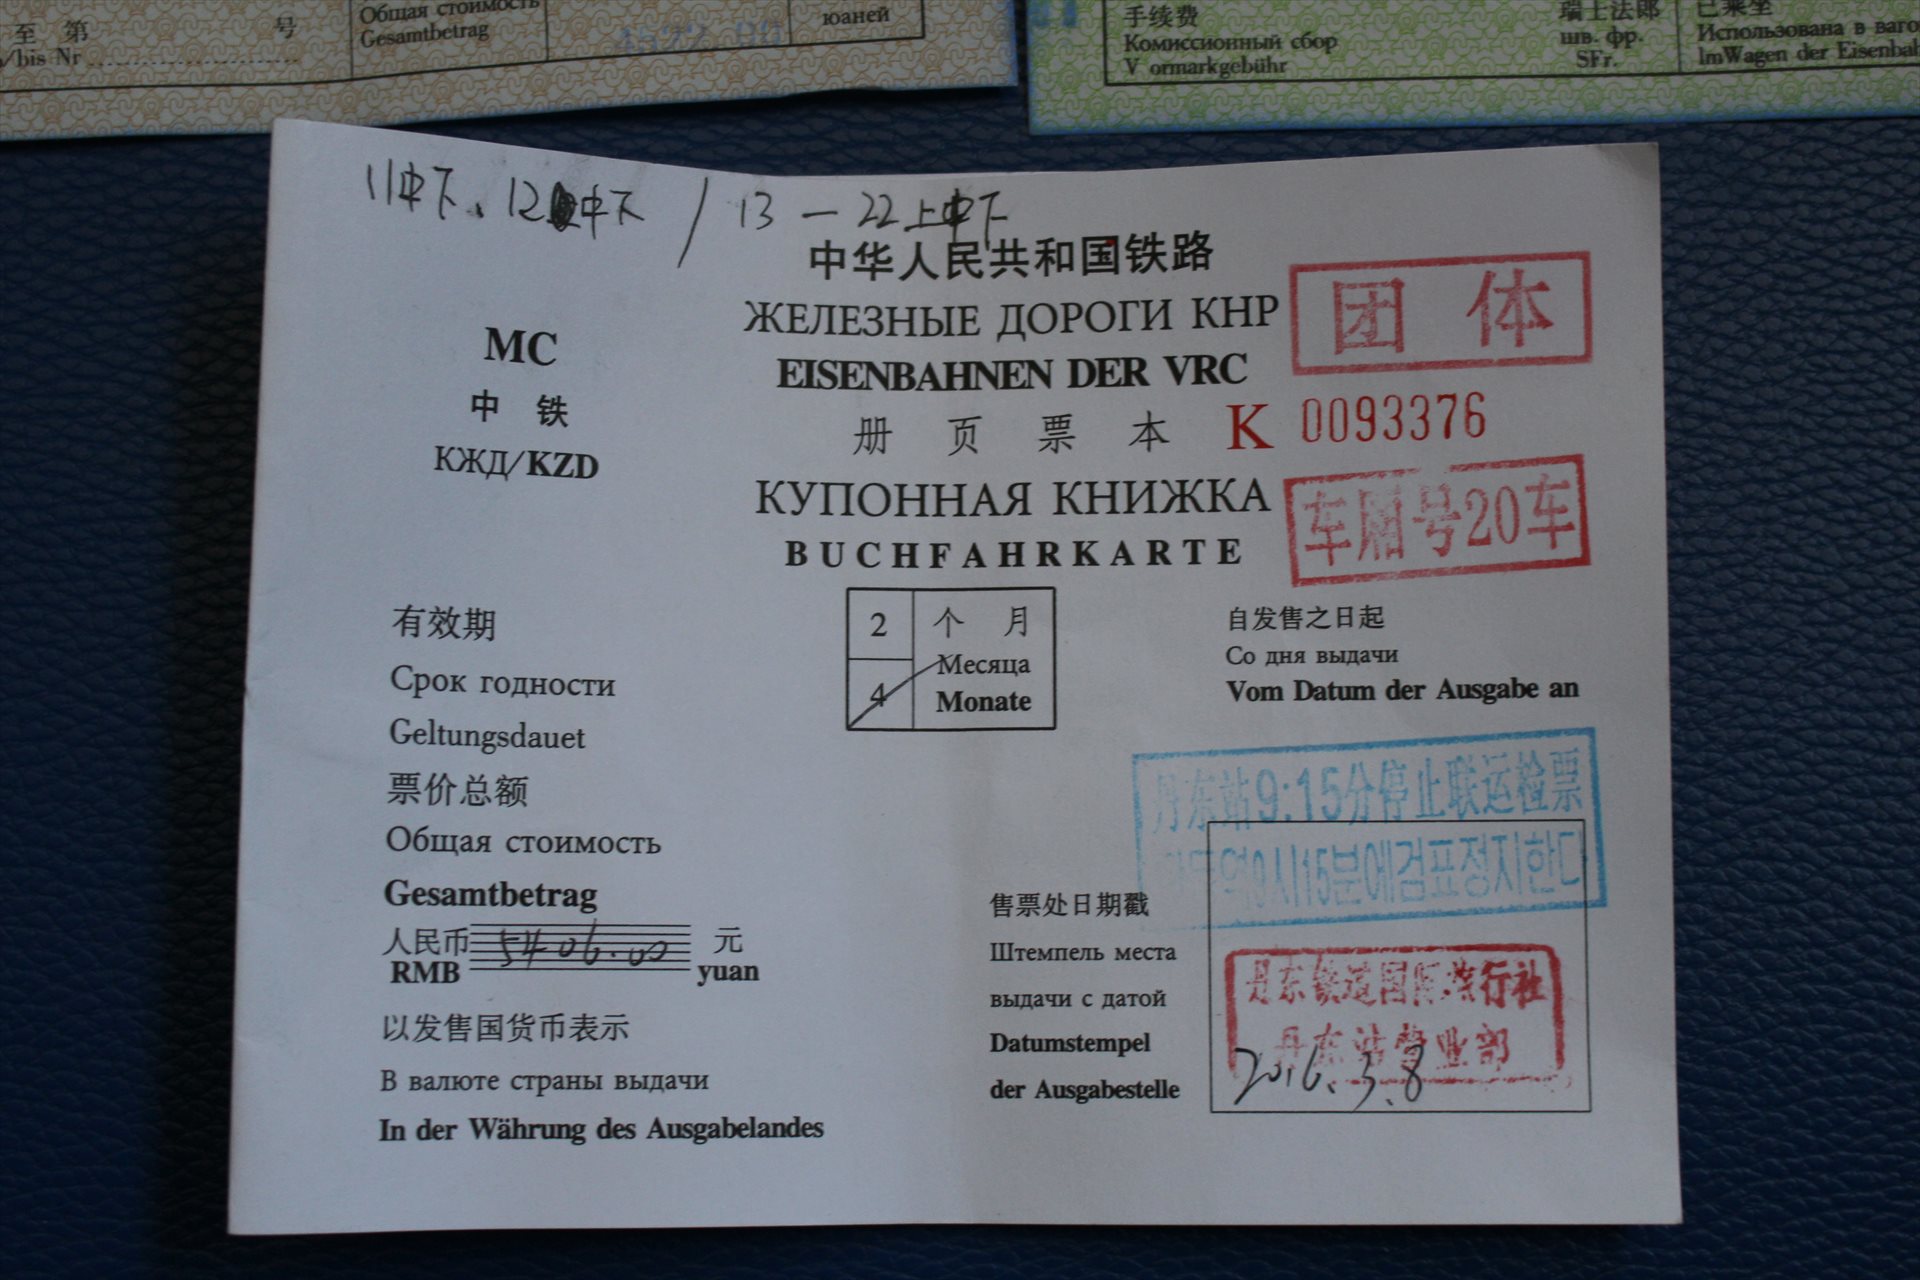 至 第 号
/bis Nr
Общая стоимость
Gesamtbetrag
юаней
手续费
Комиссионный сбор
V ormarkgebühr
瑞士法郎
шв. фр.
SFr.
已乘坐
Использована в ваго
lmWagen der Eisenbah
11中下、12中下 / 13 — 22上中下
中华人民共和国铁路
ЖЕЛЕЗНЫЕ ДОРОГИ КНР
EISENBAHNEN DER VRC
团 体
MC
中 铁
КЖД/KZD
册 页 票 本
K 0093376
КУПОННАЯ КНИЖКА
BUCHFAHRKARTE
车厢号20车
有效期
Срок годности
Geltungsdauet
2
4
个 月
Месяца
Monate
自发售之日起
Со дня выдачи
Vom Datum der Ausgabe an
票价总额
Общая стоимость
Gesamtbetrag
人民币 5406.00 元
RMB yuan
以发售国货币表示
В валюте страны выдачи
In der Währung des Ausgabelandes
丹东站9:15分停止联运检票
9시15분에검표정지한다
售票处日期戳
Штемпель места
выдачи с датой
Datumstempel
der Ausgabestelle
丹东铁道国际旅行社
丹东站营业部
2016.3.8